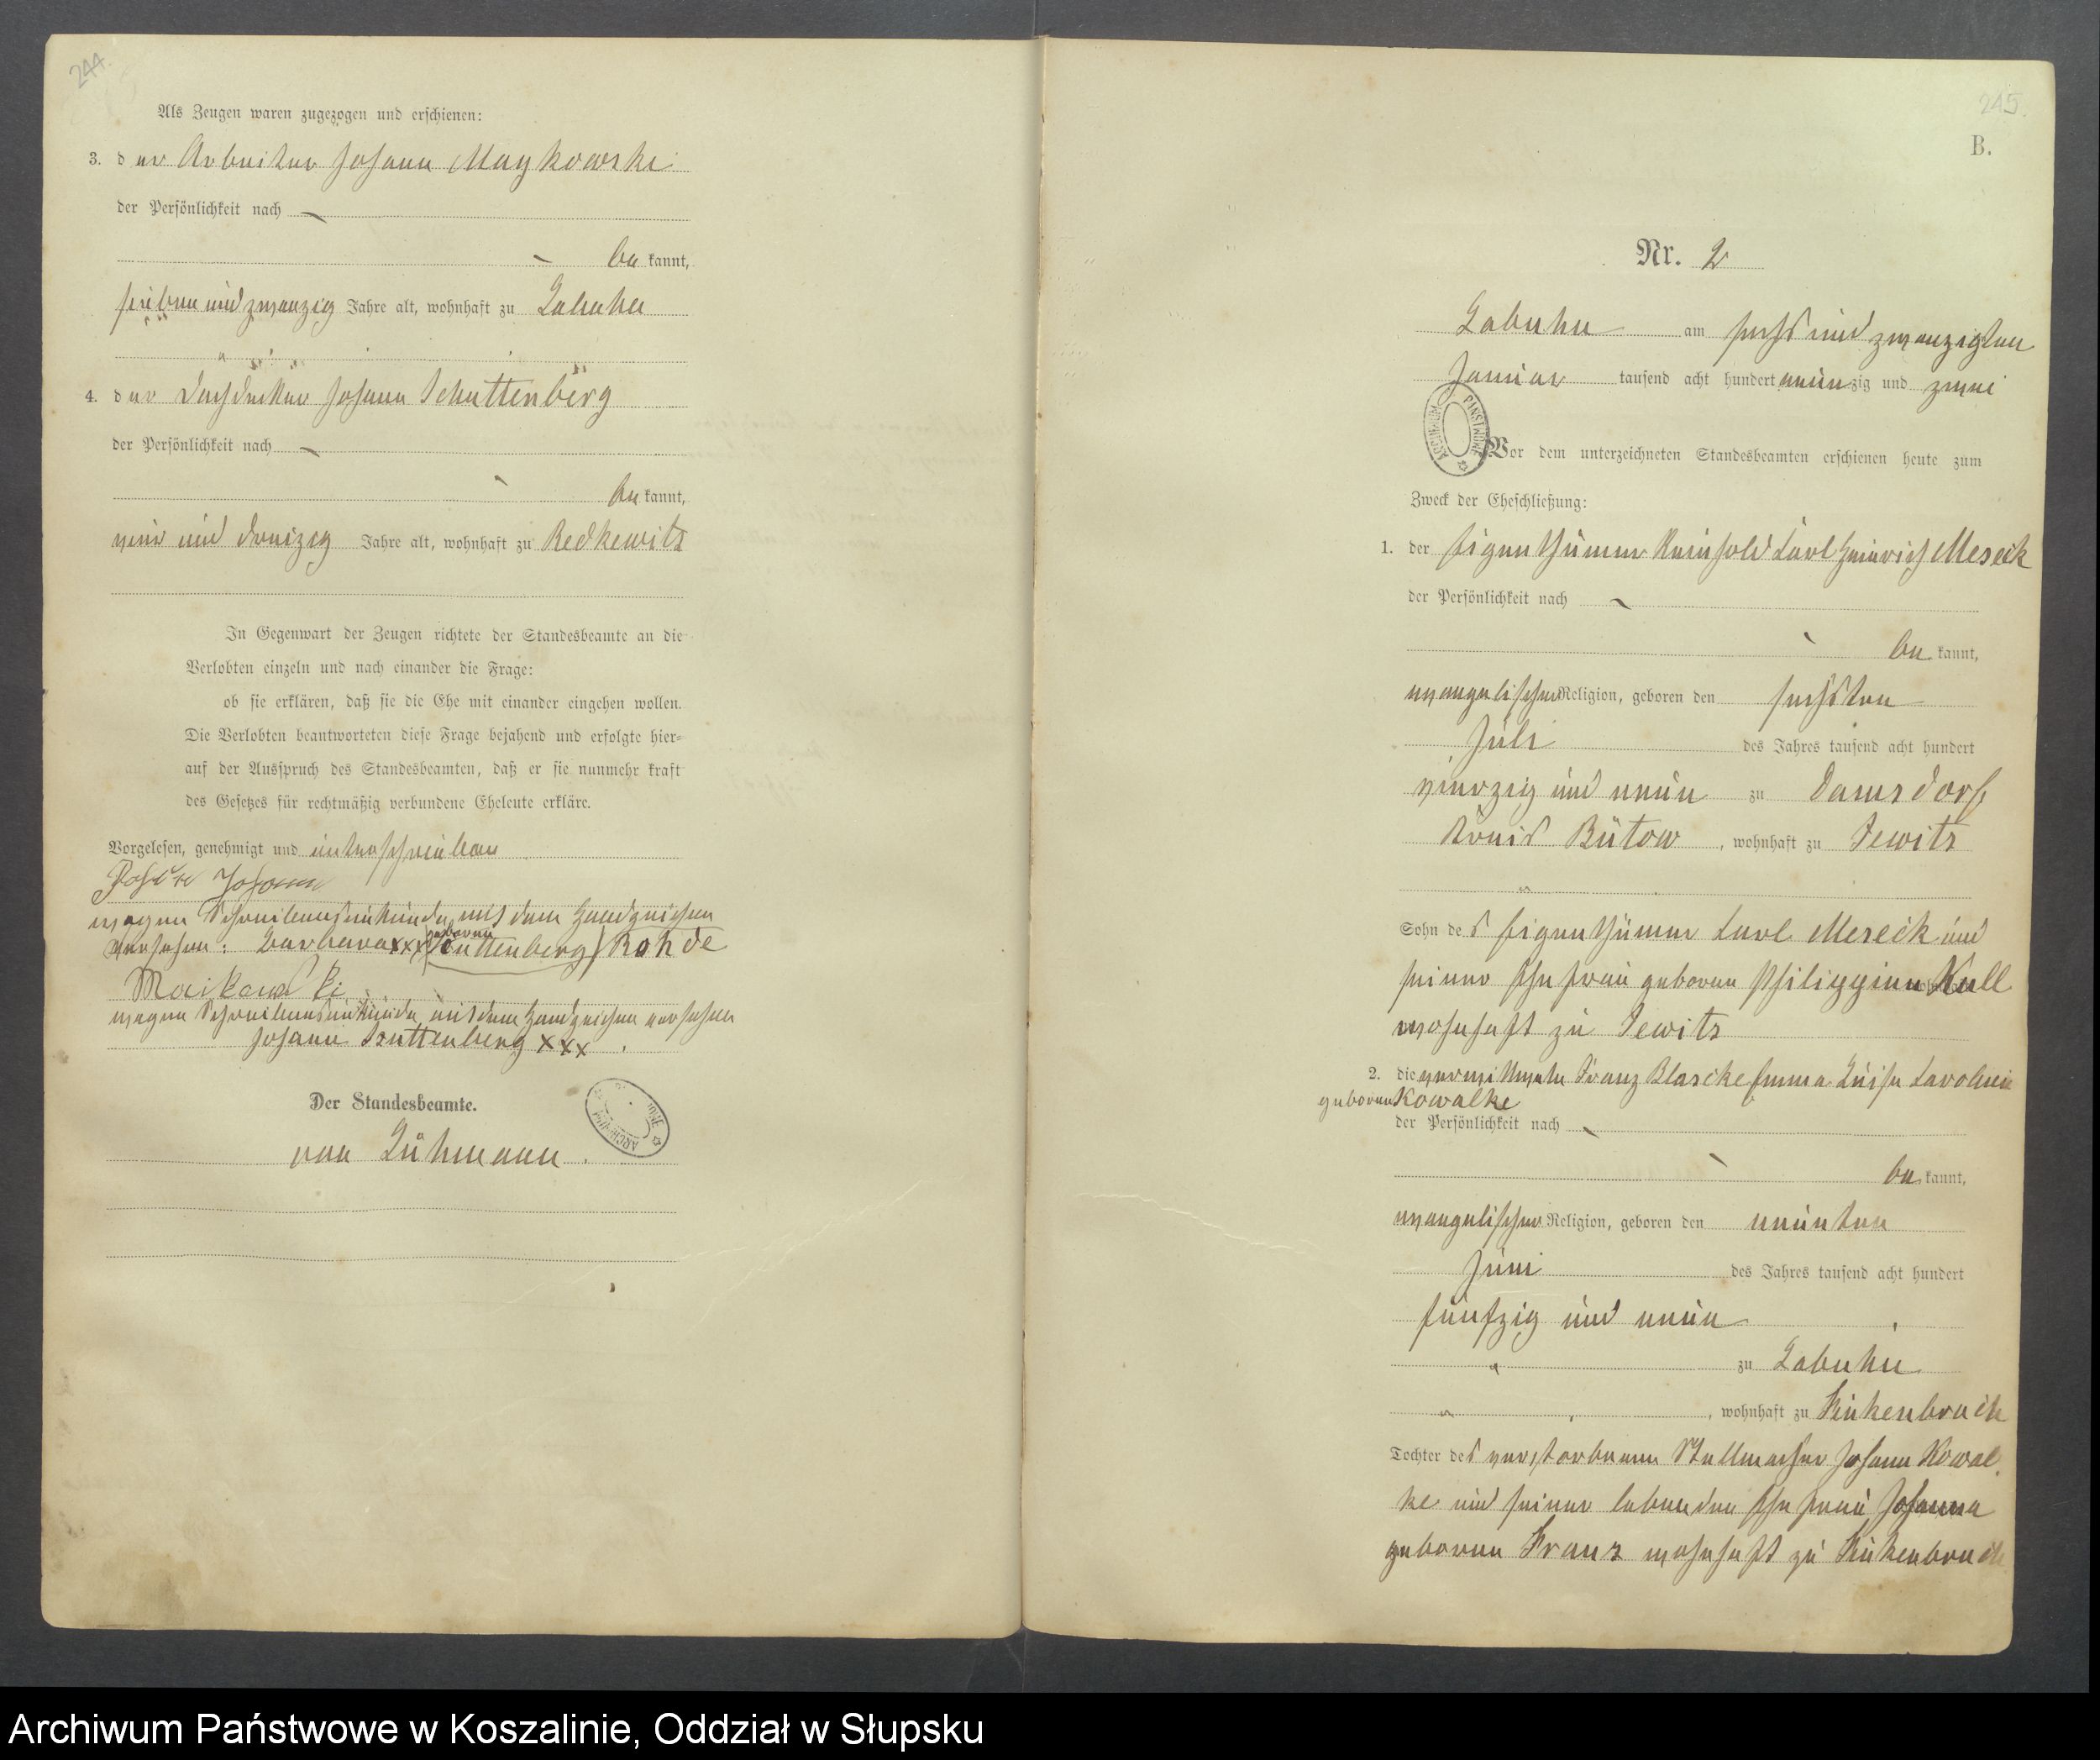 244.
Als Zeugen waren zugezogen und erschienen:
3. der Arbeiter Johann Maykowski
der Persönlichkeit nach
bekannt,
sieben und zwanzig Jahre alt, wohnhaft zu Labuhn
4. der Dachdecker Johann Schuttenberg
der Persönlichkeit nach
bekannt,
vier und dreizig Jahre alt, wohnhaft zu Redkewitz
In Gegenwart der Zeugen richtete der Standesbeamte an die
Verlobten einzeln und nach einander die Frage:
ob sie erklären, daß sie die Ehe mit einander eingehen wollen.
Die Verlobten beantworteten diese Frage bejahend und erfolgte hier=
auf der Ausspruch des Standesbeamten, daß er sie nunmehr kraft
des Gesetzes für rechtmäßig verbundene Eheleute erkläre.
Vorgelesen, genehmigt und unterschrieben
Johann
wegen Schreibensunkunde mit dem Handzeichen
versehen: Barbara xxx geboren Rohde
Maikowski
wegen Schreibensunkunde mit dem Handzeichen versehen
Johann xxx
Der Standesbeamte.
von Lühmann.
245.
B.
Nr. 2
Labuhn am sechs und zwanzigsten
Januar tausend acht hundert neunzig und zwei
ARCHIWUM PAŃSTWOWE
Vor dem unterzeichneten Standesbeamten erschienen heute zum
Zweck der Eheschließung:
1. der Eigenthümer Reinhold Carl Heinrich Meseck
der Persönlichkeit nach
bekannt,
evangelischer Religion, geboren den sechsten
Juli des Jahres tausend acht hundert
vierzig und neun zu Damsdorf
Kreis Bütow, wohnhaft zu Jewitz
Sohn des Eigenthümer Carl Meseck und
seiner Ehefrau geboren Philippine Kull
wohnhaft zu Jewitz
2. die verwittwete Franz Blascke Emma Luise Caroline
geboren Kowalke
der Persönlichkeit nach
bekannt,
evangelischer Religion, geboren den neunten
Juni des Jahres tausend acht hundert
fünfzig und neun
zu Labuhn
, wohnhaft zu Krukenbruck
Tochter des verstorbenen Stellmacher Johann Kowal
ke und seiner lebenden Ehefrau Johanna
geboren Franz wohnhaft zu Krukenbruck
Archiwum Państwowe w Koszalinie, Oddział w Słupsku